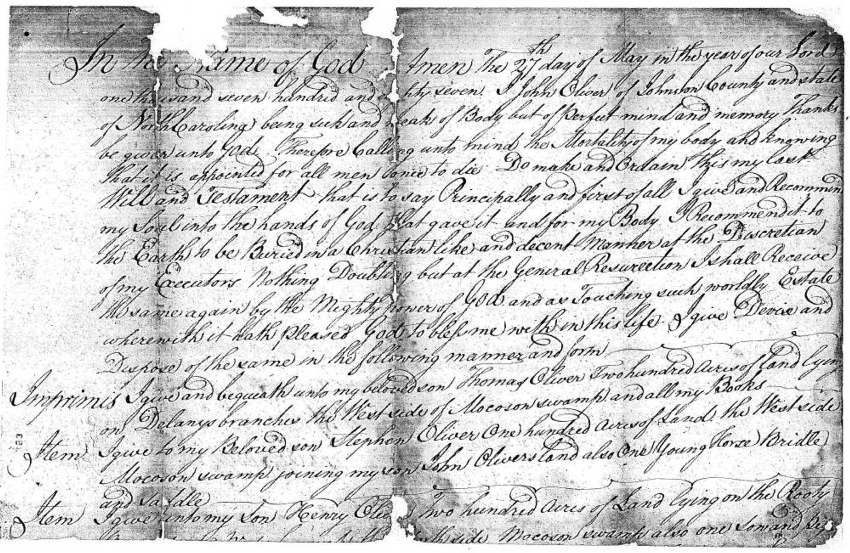 In the Name of God Amen The 27th day of May in the year of our Lord
one thousand seven hundred and ty seven. I John Oliver of Johnson County and state
of North Carolina being sick and weak of Body but of Perfect mind and memory Thanks
be given unto God, Therefore Calling unto mind the Mortality of my body and knowing
that it is appointed for all men once to die Do make and Ordain this my Last
Will and Testament that is to say Principally and first of all I give and Recommend
my Soul into the hands of God that gave it and for my Body I Recommend it to
the Earth to be Buried in a Christian like and decent Manner at the Discretian
of my Executors Nothing Doubting but at the General Resurection I shall Receive
the same again by the Mighty power of God and as Touching such worldly Estate
wherewith it hath pleased God to bless me with in this life I give Devise and
Dispose of the same in the following manner and form
Imprimis I give and bequeath unto my beloved son Thomas Oliver Two hundred Acres of Land Lying
on Delanys branches the West side of Mocoson swamp and all my Books
Item I give to my Beloved son Stephen Oliver One hundred Acres of Land the West side
Mocoson swamp joining my son John Olivers Land also One Young Horse Bridle
and Saddle
Item I give unto my Son Henry Two hundred Acres of Land Lying on the Rooty
side Mocoson swamp also one sow and